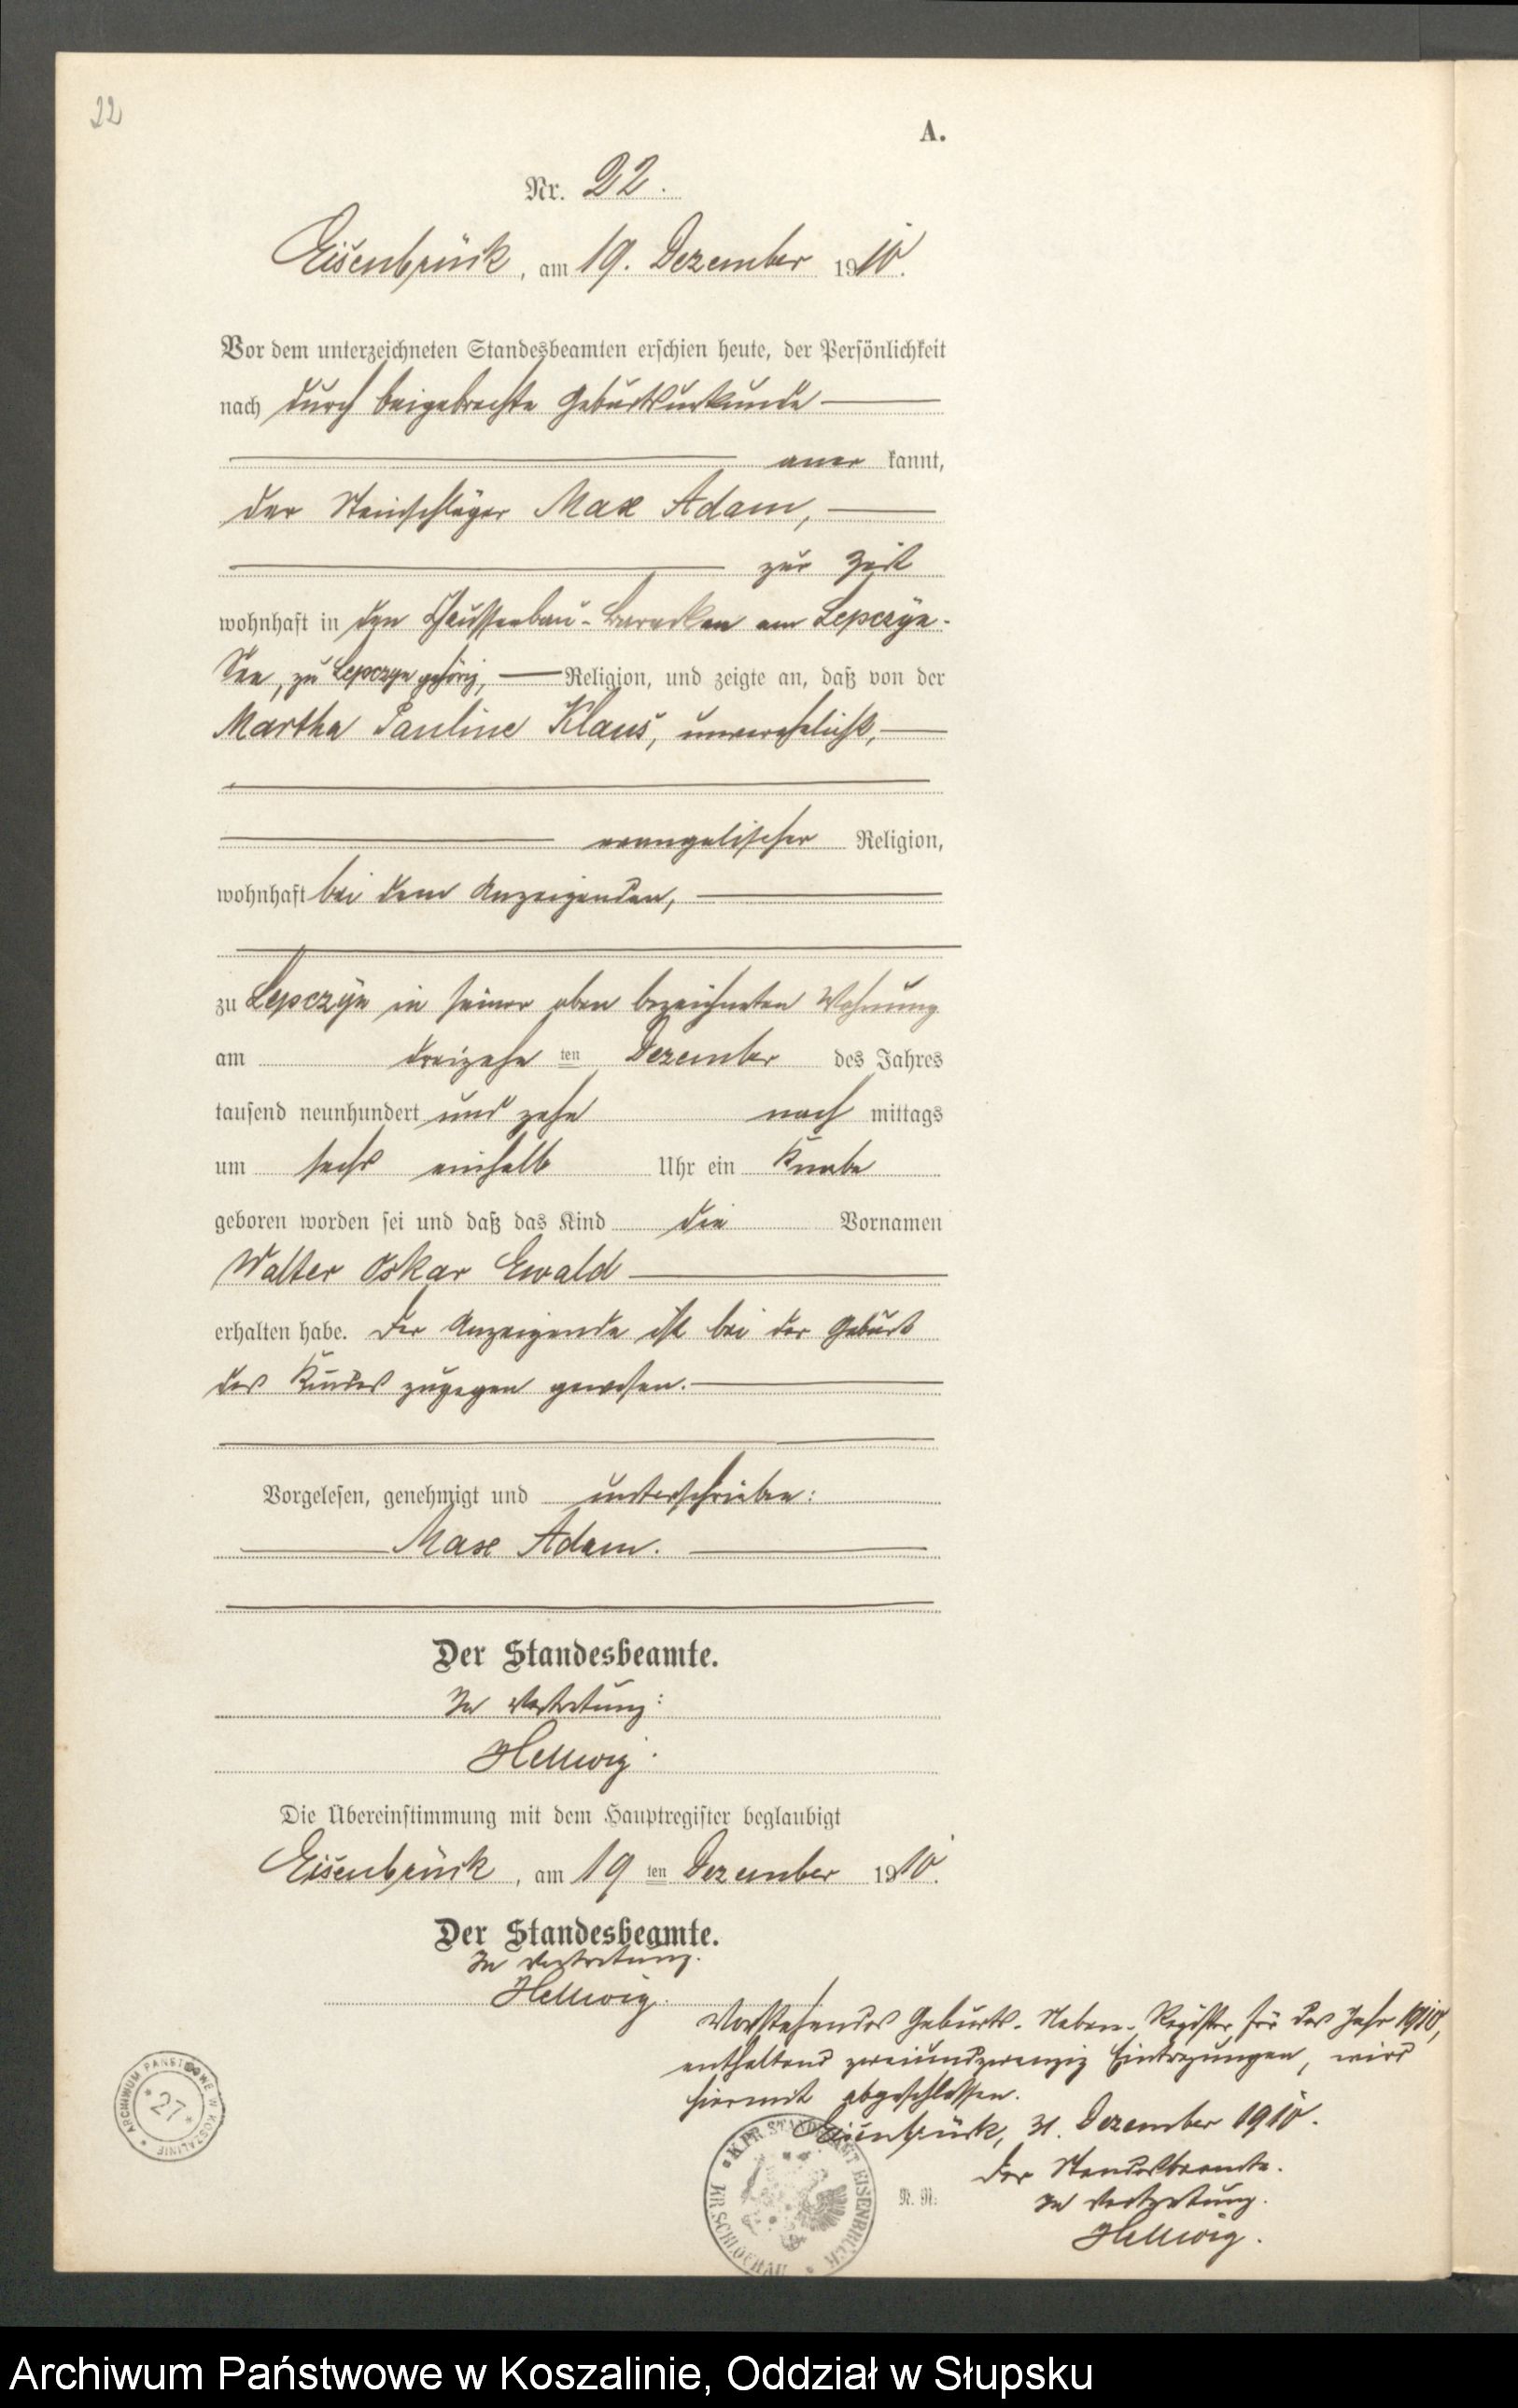 22
A.
Nr. 22.
Eisenbrück, am 19. Dezember 1910.
Vor dem unterzeichneten Standesbeamten erschien heute, der Persönlichkeit
nach durch beigebrachte Geburtsurkunde
aner kannt,
der Steinschläger Max Adam,
zur Zeit
wohnhaft in den Chausseebau-Baracken am Lepczyn-
See, zu Lepczyn gehörig, Religion, und zeigte an, daß von der
Martha Pauline Klaus, unverehelicht,
evangelischer Religion,
wohnhaft bei dem Anzeigenden,
zu Lepczyn in seiner oben bezeichneten Wohnung
am dreizehn ten Dezember des Jahres
tausend neunhundert und zehn nach mittags
um sechs einhalb Uhr ein Knabe
geboren worden sei und daß das Kind die Vornamen
Walter Oskar Ewald
erhalten habe. Der Anzeigende ist bei der Geburt
des Kindes zugegen gewesen.
Vorgelesen, genehmigt und unterschrieben:
Max Adam.
Der Standesbeamte.
In Vertretung:
Hellwig.
Die Übereinstimmung mit dem Hauptregister beglaubigt
Eisenbrück, am 19 ten Dezember 1910.
Der Standesbeamte.
In Vertretung.
Hellwig.
Vorstehendes Geburts-Neben-Register für das Jahr 1910,
enthaltend zweiundzwanzig Eintragungen, wird
hiermit abgeschlossen.
Eisenbrück, 31. Dezember 1910.
Der Standesbeamte.
In Vertretung.
Hellwig.
ARCHIWUM PAŃSTWOWE W KOSZALINIE
*27*
K.PR. STANDESAMT EISENBRÜCK
KR. SCHLOCHAU
Archiwum Państwowe w Koszalinie, Oddział w Słupsku